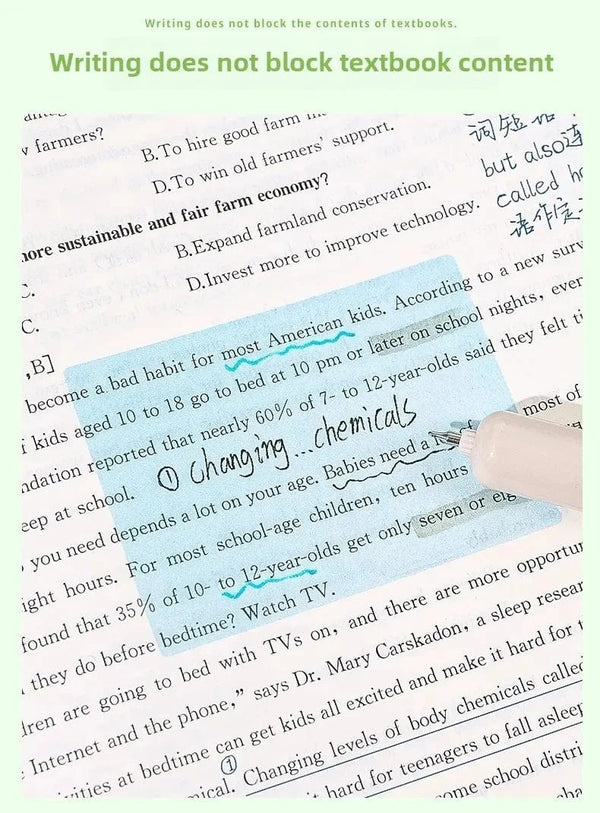 Writing does not block the contents of textbooks.
Writing does not block textbook content
farmers?
B.To hire good farm
D.To win old farmers' support.
more sustainable and fair farm economy?
B.Expand farmland conservation.
C.
D.Invest more to improve technology.
C.
,B]
词短语
but also
called
语作定
become a bad habit for most American kids. According to a new
kids aged 10 to 18 go to bed at 10 pm or later on school nights,
reported that nearly 60% of 7- to 12-year-olds said they felt
at school.
① changing...chemicals
you need depends a lot on your age. Babies need a most of
hours. For most school-age children, ten hours
found that 35% of 10- to 12-year-olds get only seven or
they do before bedtime? Watch TV.
are going to bed with TVs on, and there are more
Internet and the phone," says Dr. Mary Carskadon, a sleep
at bedtime can get kids all excited and make it hard for
①
Changing levels of body chemicals called
hard for teenagers to fall asleep
some school